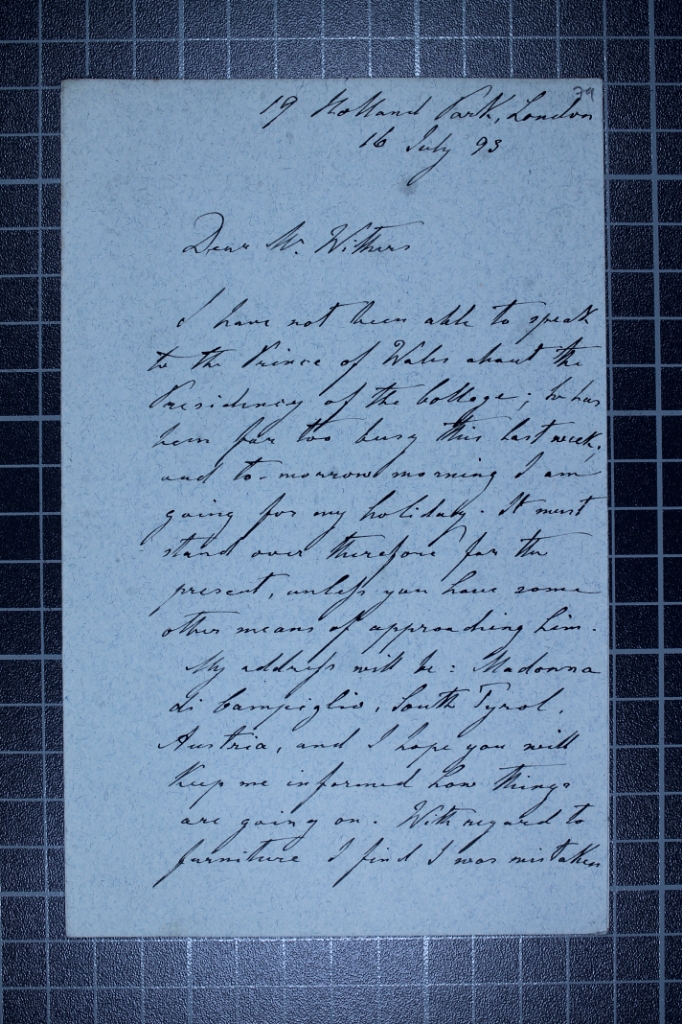 79
19 Holland Park, London
16 July 93
Dear Mr. Withers
I have not been able to speak
to the Prince of Wales about the
Presidency of the College; he has
been far too busy this last week,
and to-morrow morning I am
going for my holiday. It must
stand over therefore for the
present, unless you have some
other means of approaching him.
My address will be: Madonna
di Campiglio, South Tyrol,
Austria, and I hope you will
keep me informed how things
are going on. With regard to
furniture I find I was mistaken